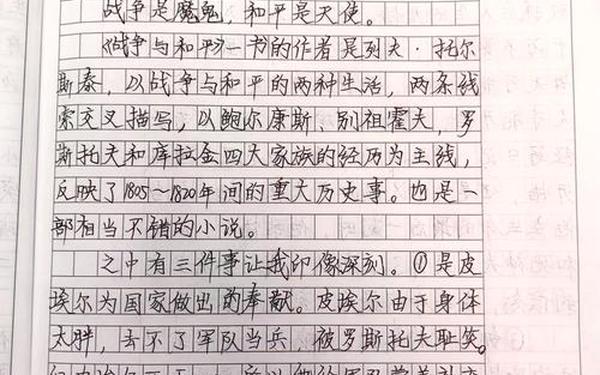 战争是魔鬼,和平是天使。
《战争与和平》一书的作者是列夫·托尔
斯泰,以战争与和平的两种生活,两条线
索交叉描写,以鲍尔康斯、别祖霍夫,罗
斯托夫和库拉金四大家族的经历为主线,
反映了1805~1820年间的重大历史事。也是一
部相当不错的小说。
之中有三件事让我印像深刻。①是皮
埃尔为国家做出的奉献。皮埃尔由于身体
太胖,去不了军队当兵,被罗斯托夫耻笑。